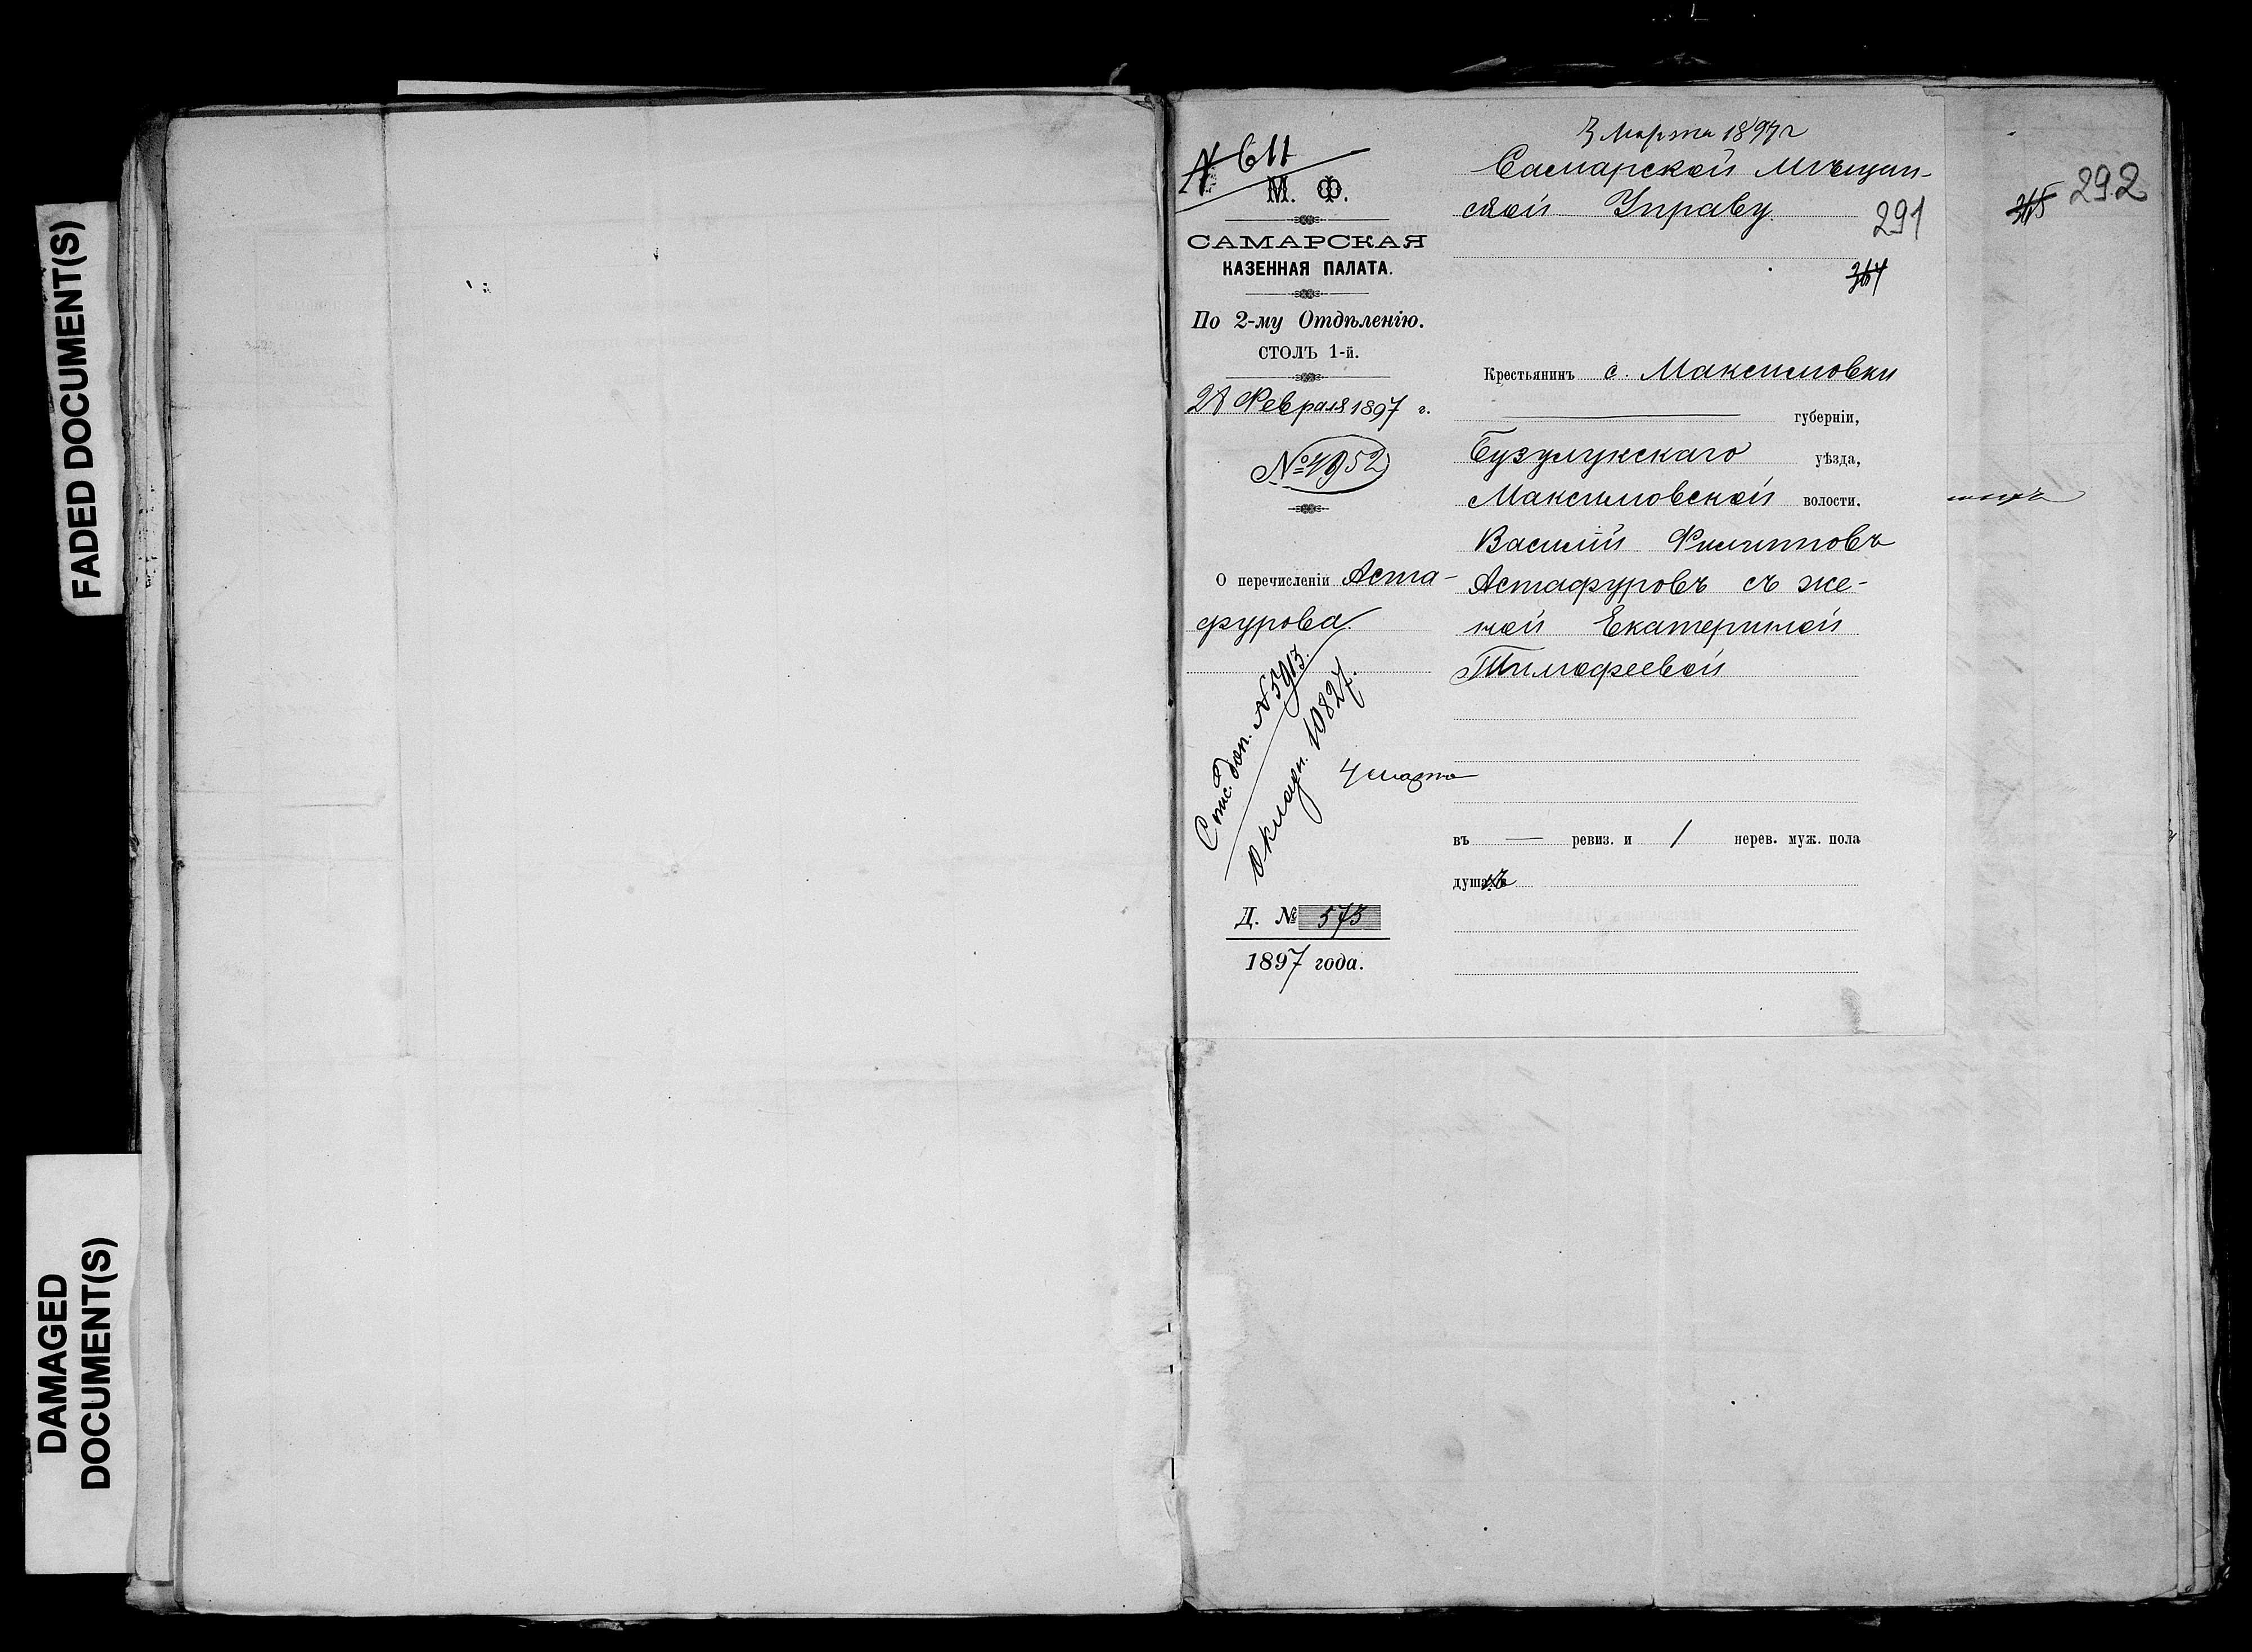 FADED DOCUMENT(S)
DAMAGED
DOCUMENT(S)
№ 611
М. Ф.
САМАРСКАЯ
КАЗЕННАЯ ПАЛАТА.
По 2-му Отдѣленію.
СТОЛЪ 1-й.
28 Февраля 1897 г.
О перечисленіи Аста-
фурова.
Спис. доп. № 5913.
Окладн. 10827.
4 марта
Д. № 573
1897 года.
3 Марта 1897 г
Самарской Мѣщан-
ской Управу.
291
364
Крестьянинъ с. Максимовки
губерніи,
Бузулукскаго уѣзда,
Максимовской волости.
Василій Филипповъ
Астафуровъ съ же-
ной Екатериной
Тимофеевой
въ — ревиз. и 1 перев. муж. пола
292
365